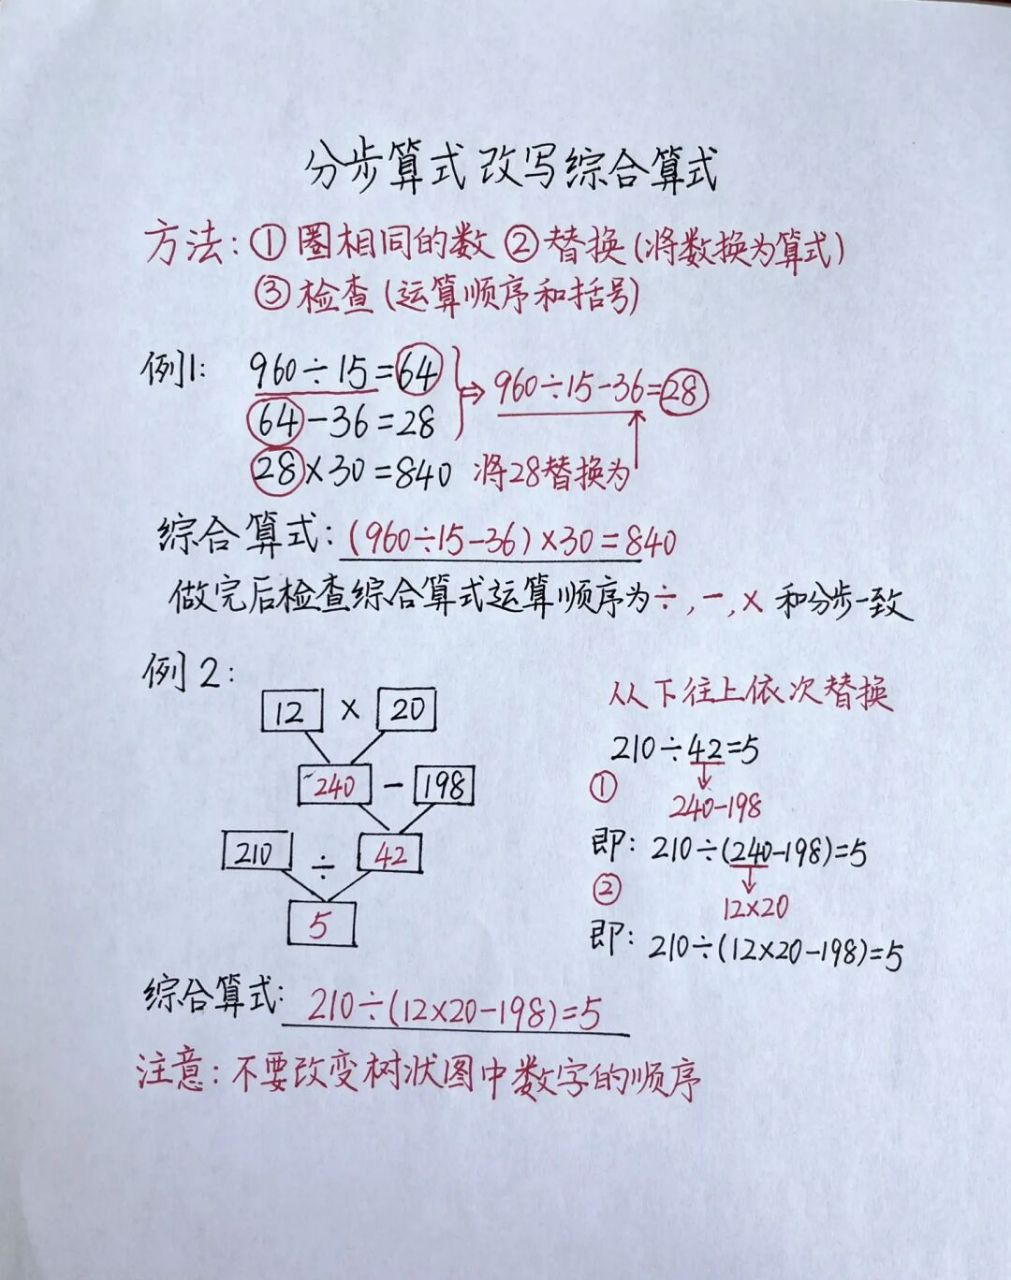 分步算式改写综合算式
方法:①圈相同的数 ②替换(将数换为算式)
③检查(运算顺序和括号)
例1: 960÷15=64 ⇒ 960÷15-36=28
64-36=28
28×30=840 将28替换为
综合算式:(960÷15-36)×30=840
做完后检查综合算式运算顺序为÷,-,× 和分步一致
例2:
12 × 20
240 - 198
210 ÷ 42
5
从下往上依次替换
210÷42=5
①
240-198
即: 210÷(240-198)=5
②
12×20
即: 210÷(12×20-198)=5
综合算式: 210÷(12×20-198)=5
注意:不要改变树状图中数字的顺序